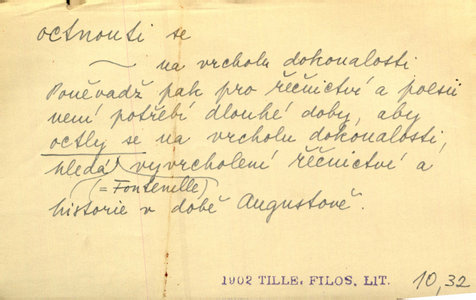 octnouti se
~ na vrcholu dokonalosti
Poněvadž pak pro řečnictví a poesii
není potřebí dlouhé doby, aby
octly se na vrcholu dokonalosti,
hledá vyvrcholení řečnictví a
(= Fontenelle)
historie v době Augustově.
1902 TILLE, FILOS. LIT. 10,32